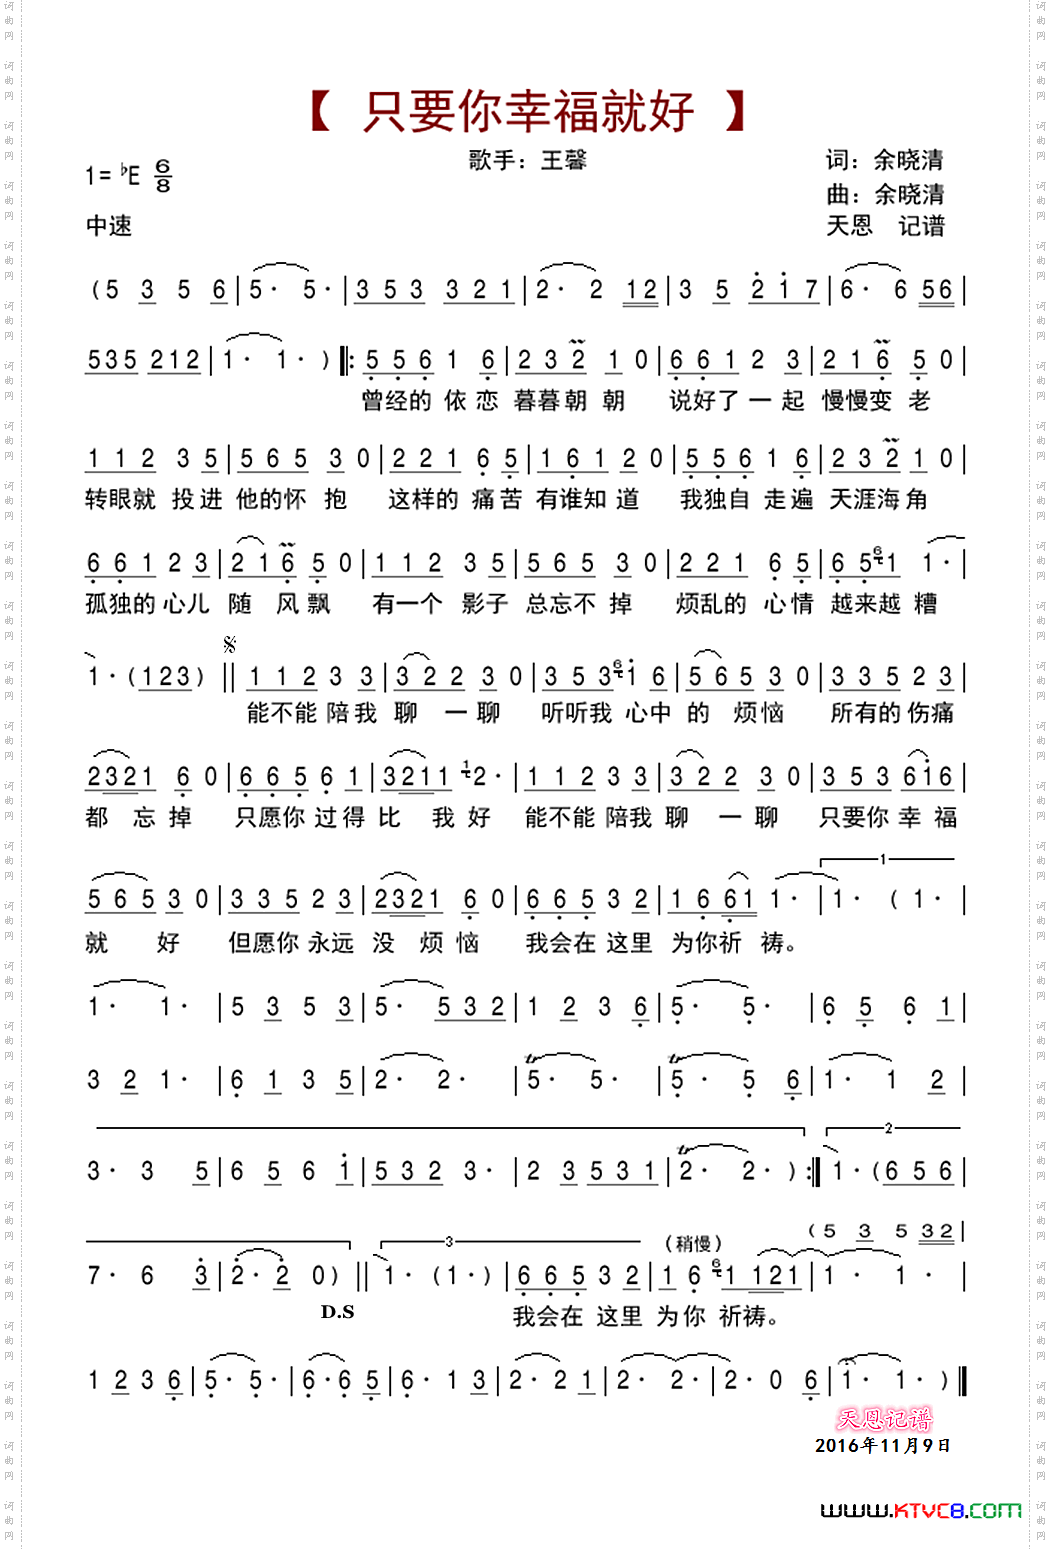 【 只要你幸福就好 】
1= ♭E 6/8 歌手：王馨 词：余晓清
曲：余晓清
中速 天恩 记谱
(5 3 5 6 | 5· 5· | 3 5 3 3 2 1 | 2· 2 1 2 | 3 5 2 1 7 | 6· 6 5 6 |
5 3 5 2 1 2 | 1· 1· ) ‖: 5 5 6 1 6 | 2 3 2 1 0 | 6 6 1 2 3 | 2 1 6 5 0 |
曾经的 依恋 暮暮朝 朝 说好了 一起 慢慢变 老
1 1 2 3 5 | 5 6 5 3 0 | 2 2 1 6 5 | 1 6 1 2 0 | 5 5 6 1 6 | 2 3 2 1 0 |
转眼就 投进 他的怀 抱 这样的 痛苦 有谁知 道 我独自 走遍 天涯海 角
6 6 1 2 3 | 2 1 6 5 0 | 1 1 2 3 5 | 5 6 5 3 0 | 2 2 1 6 5 | 6 5 6 1 1· |
孤独的 心儿 随 风 飘 有一个 影子 总忘不 掉 烦乱的 心情 越来越 糟
1· (1 2 3) ‖ 1 1 2 3 3 | 3 2 2 3 0 | 3 5 3 6 1 6 | 5 6 5 3 0 | 3 3 5 2 3 |
能不能 陪我 聊 一 聊 听听我 心中 的 烦恼 所有的 伤痛
2 3 2 1 6 0 | 6 6 5 6 1 | 3 2 1 1 1 2· | 1 1 2 3 3 | 3 2 2 3 0 | 3 5 3 6 1 6 |
都 忘 掉 只愿你 过得 比 我 好 能不能 陪我 聊 一 聊 只要你 幸 福
1
5 6 5 3 0 | 3 3 5 2 3 | 2 3 2 1 6 0 | 6 6 5 3 2 | 1 6 6 1 1· | 1· (1· |
就 好 但愿你 永远 没 烦 恼 我会在 这里 为你祈 祷。
1· 1· | 5 3 5 3 | 5· 5 3 2 | 1 2 3 6 | 5· 5· | 6 5 6 1 |
3 2 1· | 6 1 3 5 | 2· 2· | tr 5· 5· | tr 5· 5 6 | 1· 1 2 |
2
3· 3 5 | 6 5 6 1 | 5 3 2 3· | 2 3 5 3 1 | tr 2· 2· ) :‖ 1· (6 5 6 |
3 (稍慢) (5 3 5 3 2 |
7· 6 3 | 2· 2 0) ‖ 1· (1·) | 6 6 5 3 2 | 1 6 6 1 1 2 1 | 1· 1· |
D.S 我会在 这里 为你 祈祷。
1 2 3 6 | 5· 5· | 6· 6 5 | 6· 1 3 | 2· 2 1 | 2· 2· | 2· 0 6 | 1· 1· ) ‖
天恩记谱
2016年11月9日
www.KTVC8.com